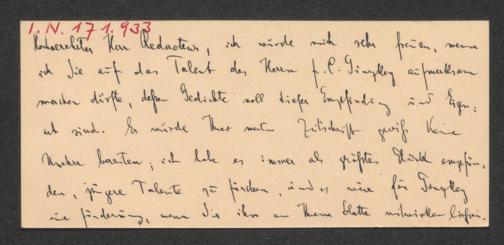 I. N. 171.933
Hochverehrter Herr Redacteur, ich würde mich sehr freuen, wenn
ich Sie auf das Talent des Herrn F. C. Ginzkey aufmerksam
machen dürfte, dessen Gedichte voll tiefer Empfindung und Eigen-
art sind. Er würde Ihrer Zeitschrift gewiß keine
Unehre bereiten; ich habe es immer als größtes Glück empfun-
den, jüngere Talente zu fördern, und es wäre für Ginzkey
eine Förderung, wenn Sie ihn an Ihrem Blatte mitwirken ließen.